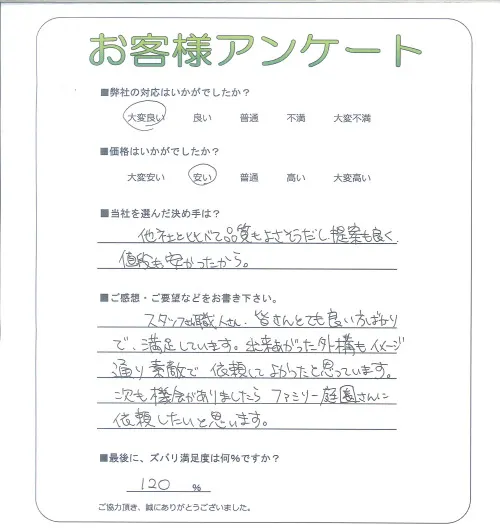 お客様アンケート
■弊社の対応はいかがでしたか?
大変良い 良い 普通 不満 大変不満
■価格はいかがでしたか?
大変安い 安い 普通 高い 大変高い
■当社を選んだ決め手は?
他社と比べて品質もよさそうだし提案も良く
値段も安かったから。
■ご感想・ご要望などをお書き下さい。
スタッフさん職人さん、皆さんとても良い方ばかり
で、満足しています。出来あがった外構もイメージ
通り素敵で依頼してよかったと思っています。
次も機会がありましたらファミリー庭園さんに
依頼したいと思います。
■最後に、ズバリ満足度は何%ですか?
120 %
ご協力頂き、誠にありがとうございました。